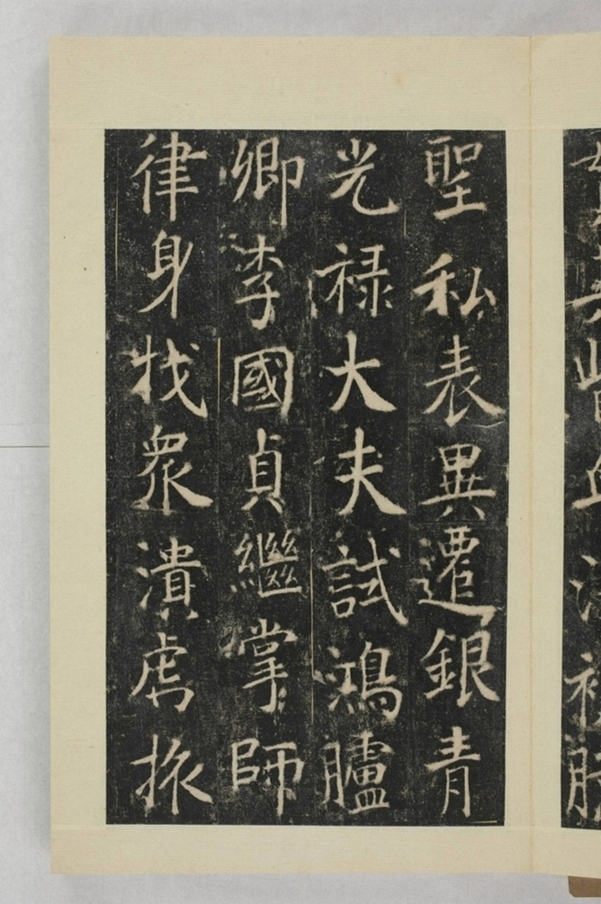 聖私表異遷銀青
光禄大夫試鴻臚
卿李國貞繼掌師
律身戕衆潰虐旅